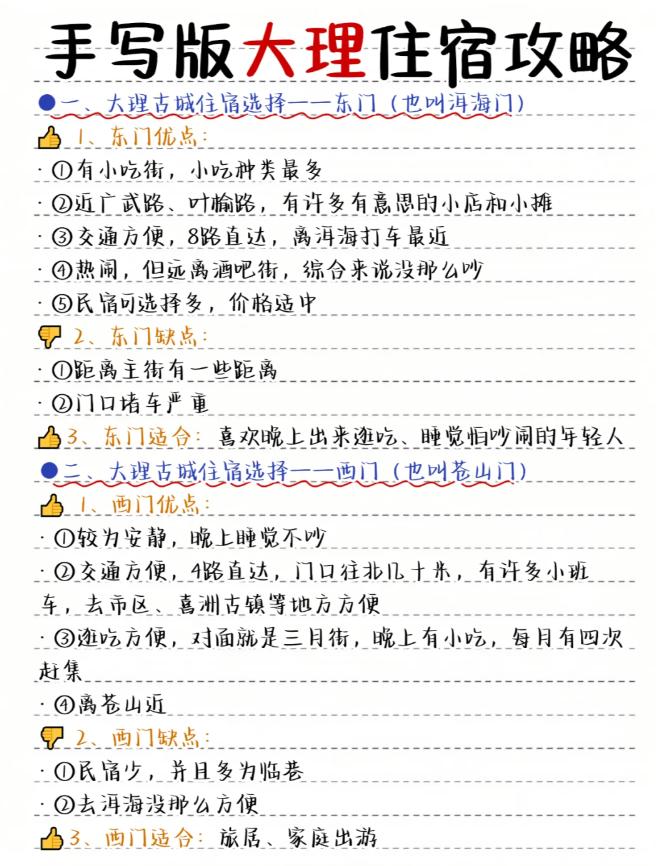 手写版大理住宿攻略
一、大理古城住宿选择——东门（也叫洱海门）
1、东门优点：
·①有小吃街，小吃种类最多
·②近广武路、叶榆路，有许多有意思的小店和小摊
·③交通方便，8路直达，离洱海打车最近
·④热闹，但远离酒吧街，综合来说没那么吵
·⑤民宿可选择多，价格适中
2、东门缺点：
·①距离主街有一些距离
·②门口堵车严重
3、东门适合：喜欢晚上出来逛吃、睡觉怕吵闹的年轻人
二、大理古城住宿选择——西门（也叫苍山门）
1、西门优点：
·①较为安静，晚上睡觉不吵
·②交通方便，4路直达，门口往北几十米，有许多小班
车，去市区、喜洲古镇等地方方便
·③逛吃方便，对面就是三月街，晚上有小吃，每月有四次
赶集
·④离苍山近
2、西门缺点：
·①民宿少，并且多为临巷
·②去洱海没那么方便
3、西门适合：旅居、家庭出游